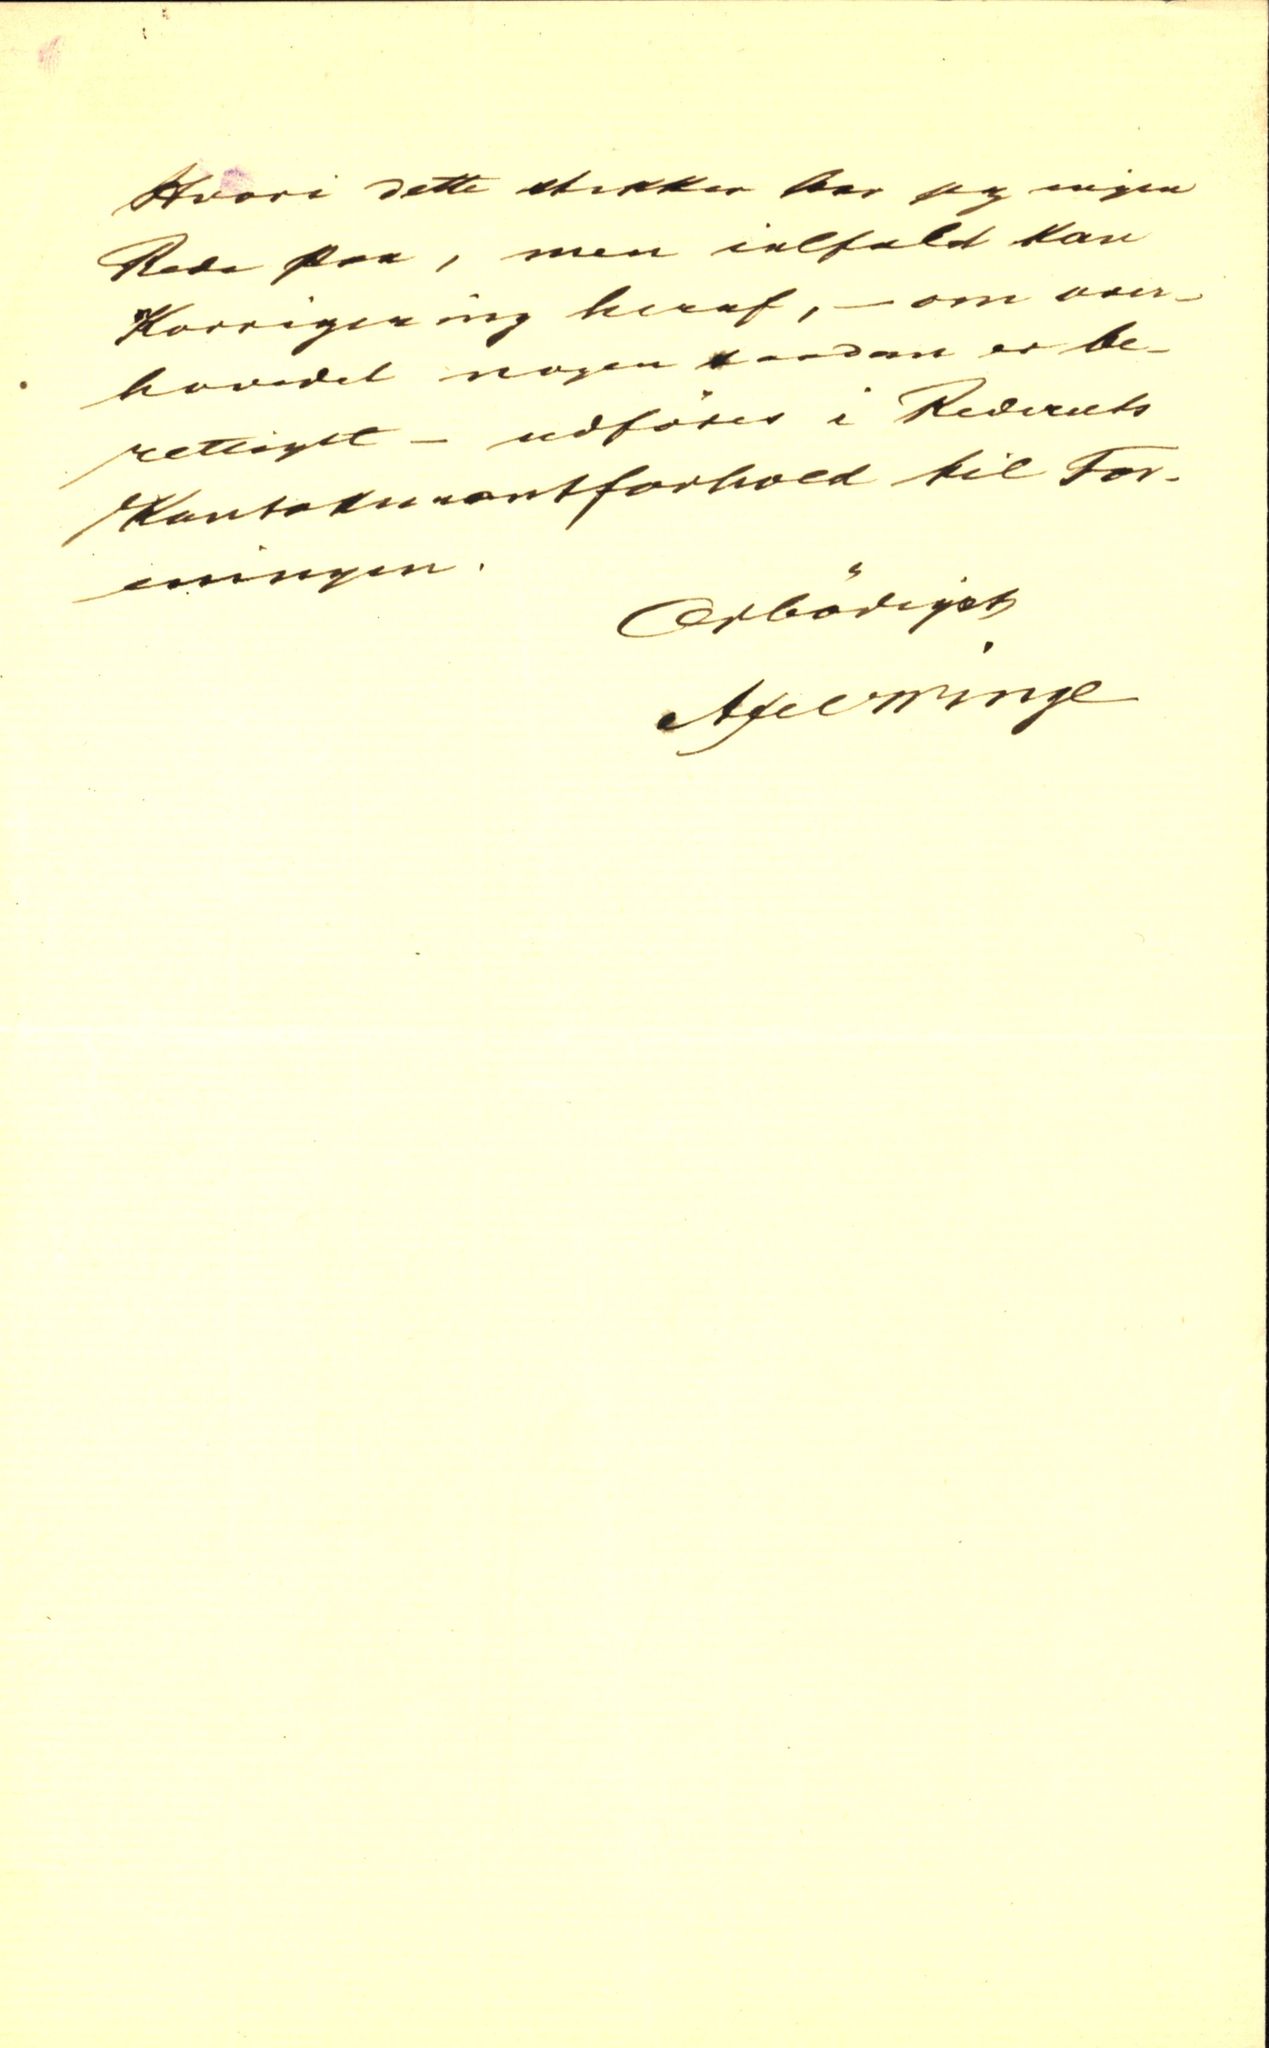 Hvori dette stikker har jeg ingen
Rede paa, men ialfald kan
Korrigering heraf, – om over-
hovedet nogen saadan er be-
rettiget – udföres i Rederiets
Kontokurantforhold til For-
eningen.
Ærbödigst
Axel Winge